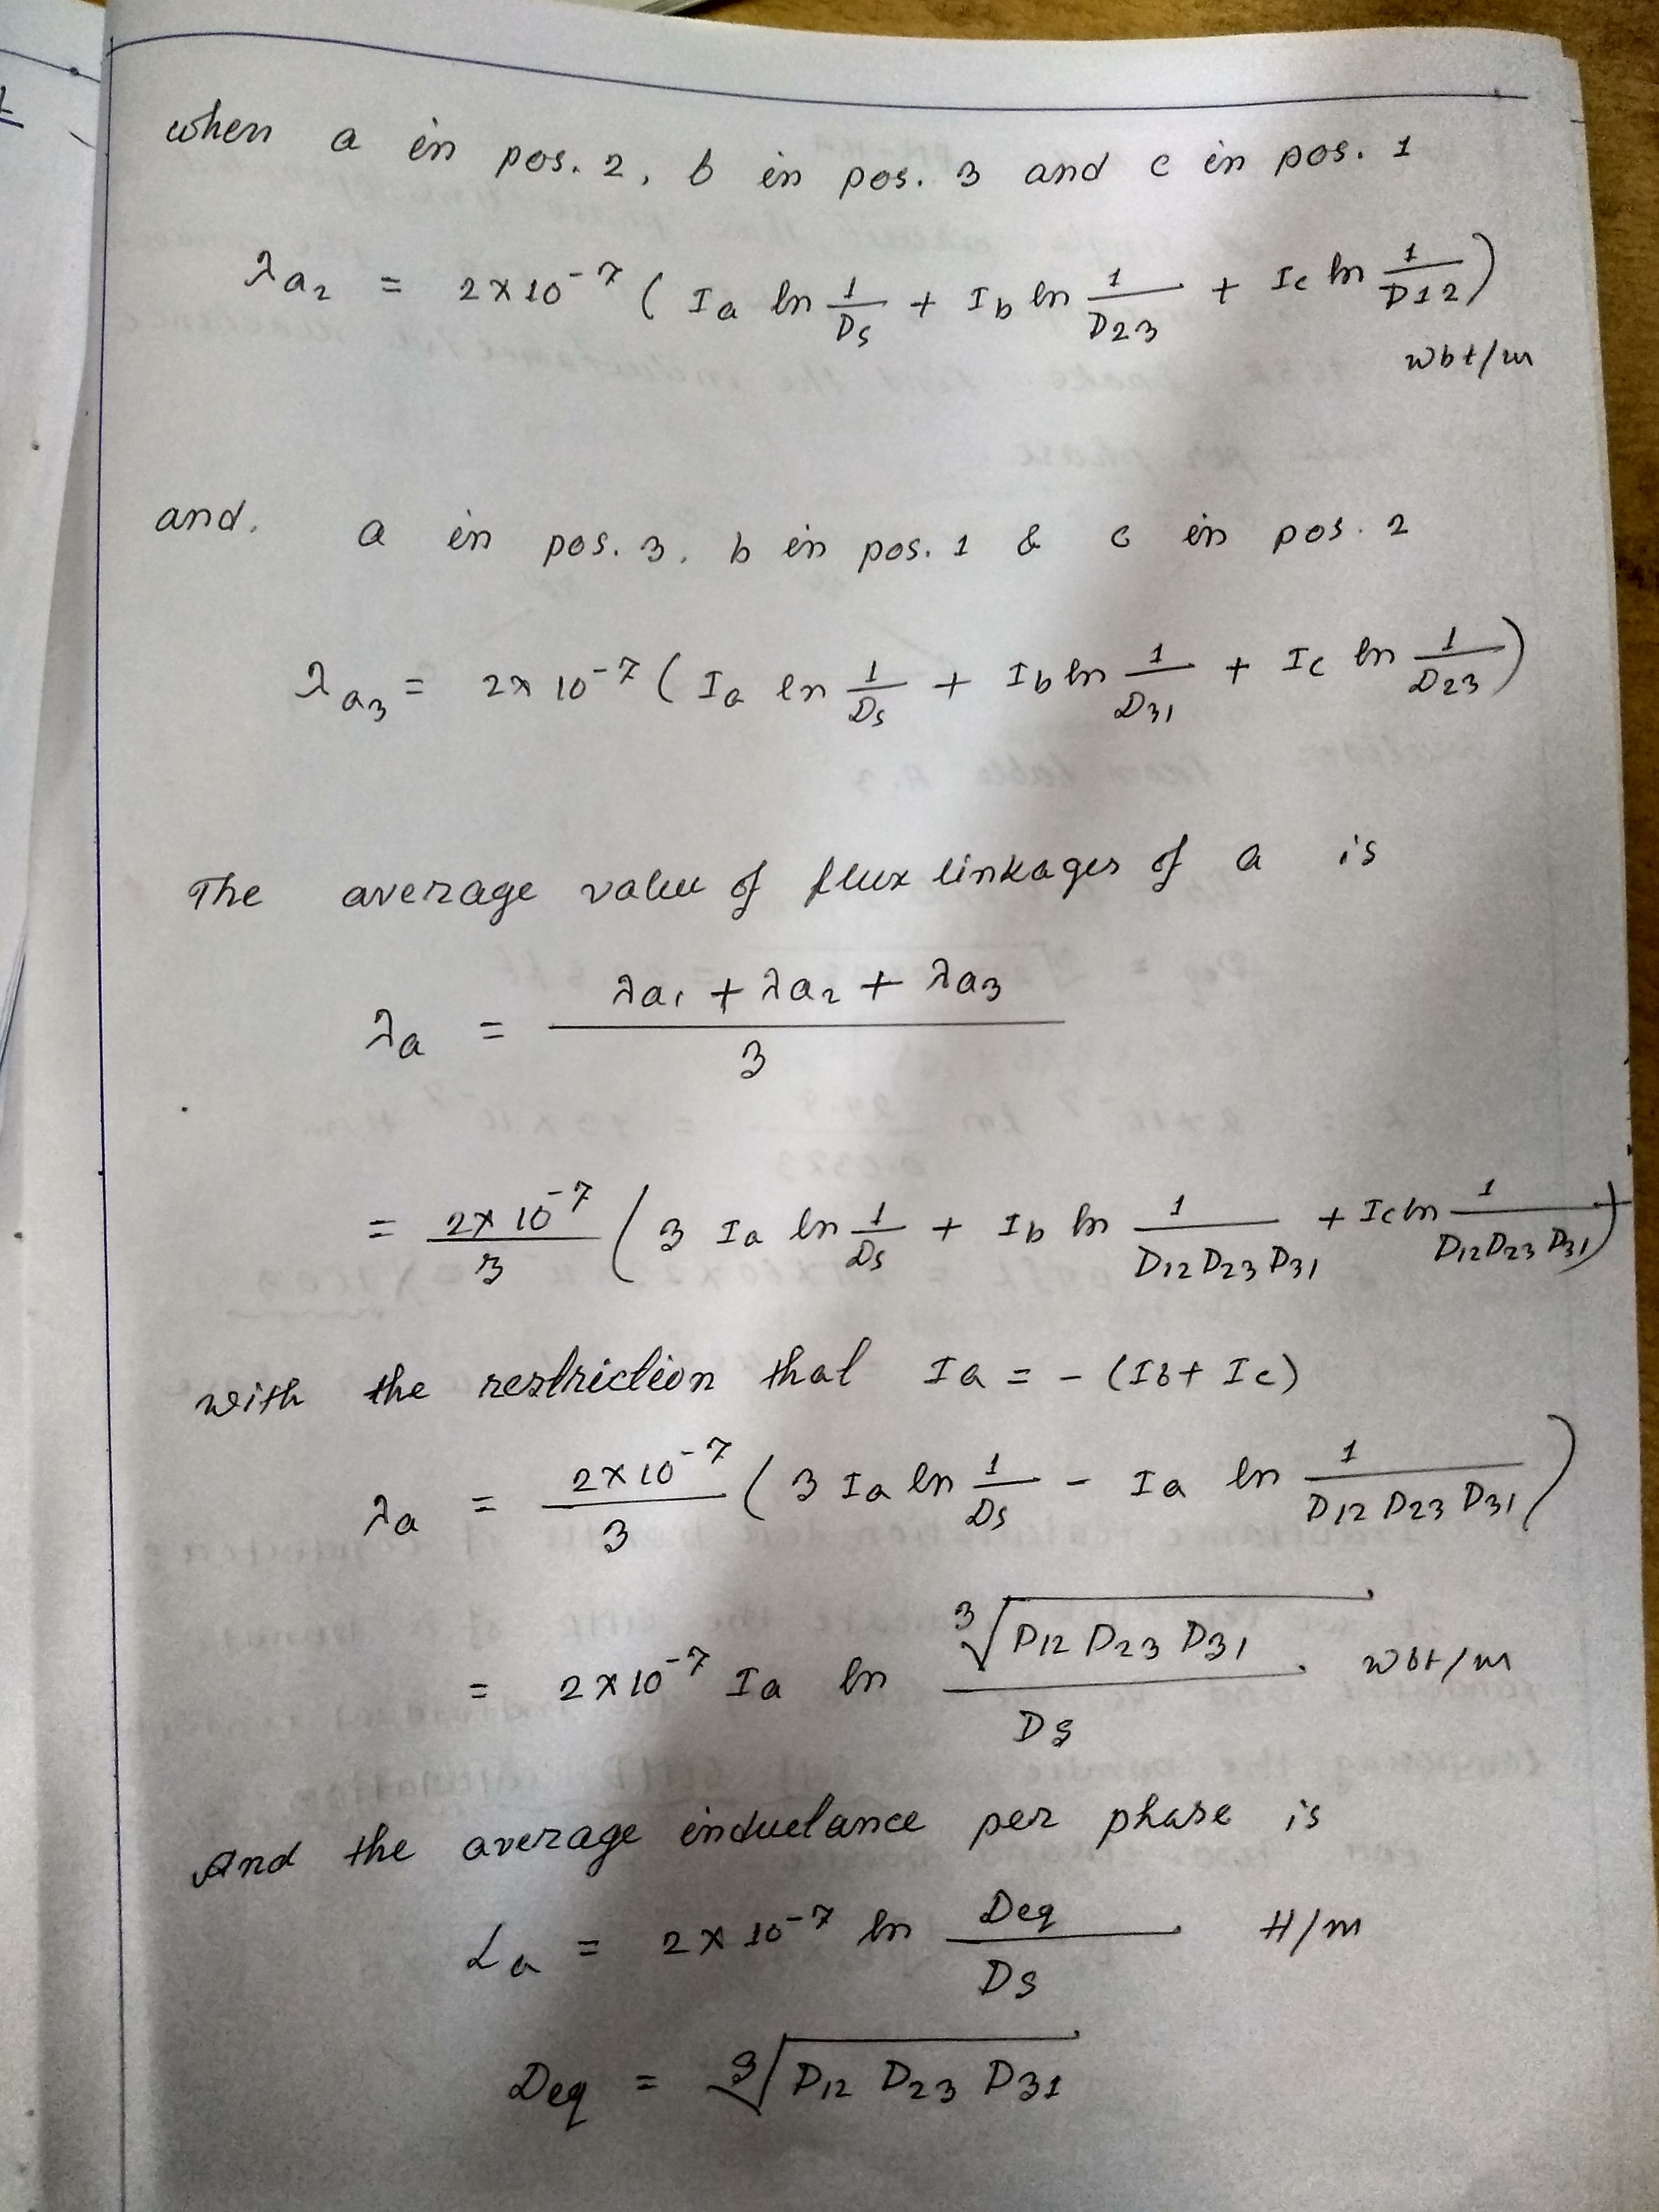 when a in pos. 2, b in pos. 3 and c in pos. 1
λa₂ = 2×10⁻⁷ ( Ia ln 1/Ds + Ib ln 1/D23 + Ic ln 1/D12 )
wbt/m
and. a in pos. 3. b in pos. 1 & c in pos. 2
λa₃ = 2×10⁻⁷ ( Ia ln 1/Ds + Ib ln 1/D31 + Ic ln 1/D23 )
The average value of flux linkages of a is
λa = (λa₁ + λa₂ + λa₃)/3
= 2×10⁻⁷/3 ( 3 Ia ln 1/Ds + Ib ln 1/(D12 D23 D31) + Ic ln 1/(D12 D23 D31) )
with the restriction that Ia = - (Ib + Ic)
λa = 2×10⁻⁷/3 ( 3 Ia ln 1/Ds - Ia ln 1/(D12 D23 D31) )
= 2×10⁻⁷ Ia ln ∛(D12 D23 D31)/Ds wbt/m
And the average inductance per phase is
La = 2×10⁻⁷ ln Deq/Ds H/m
Deq = ∛(D12 D23 D31)